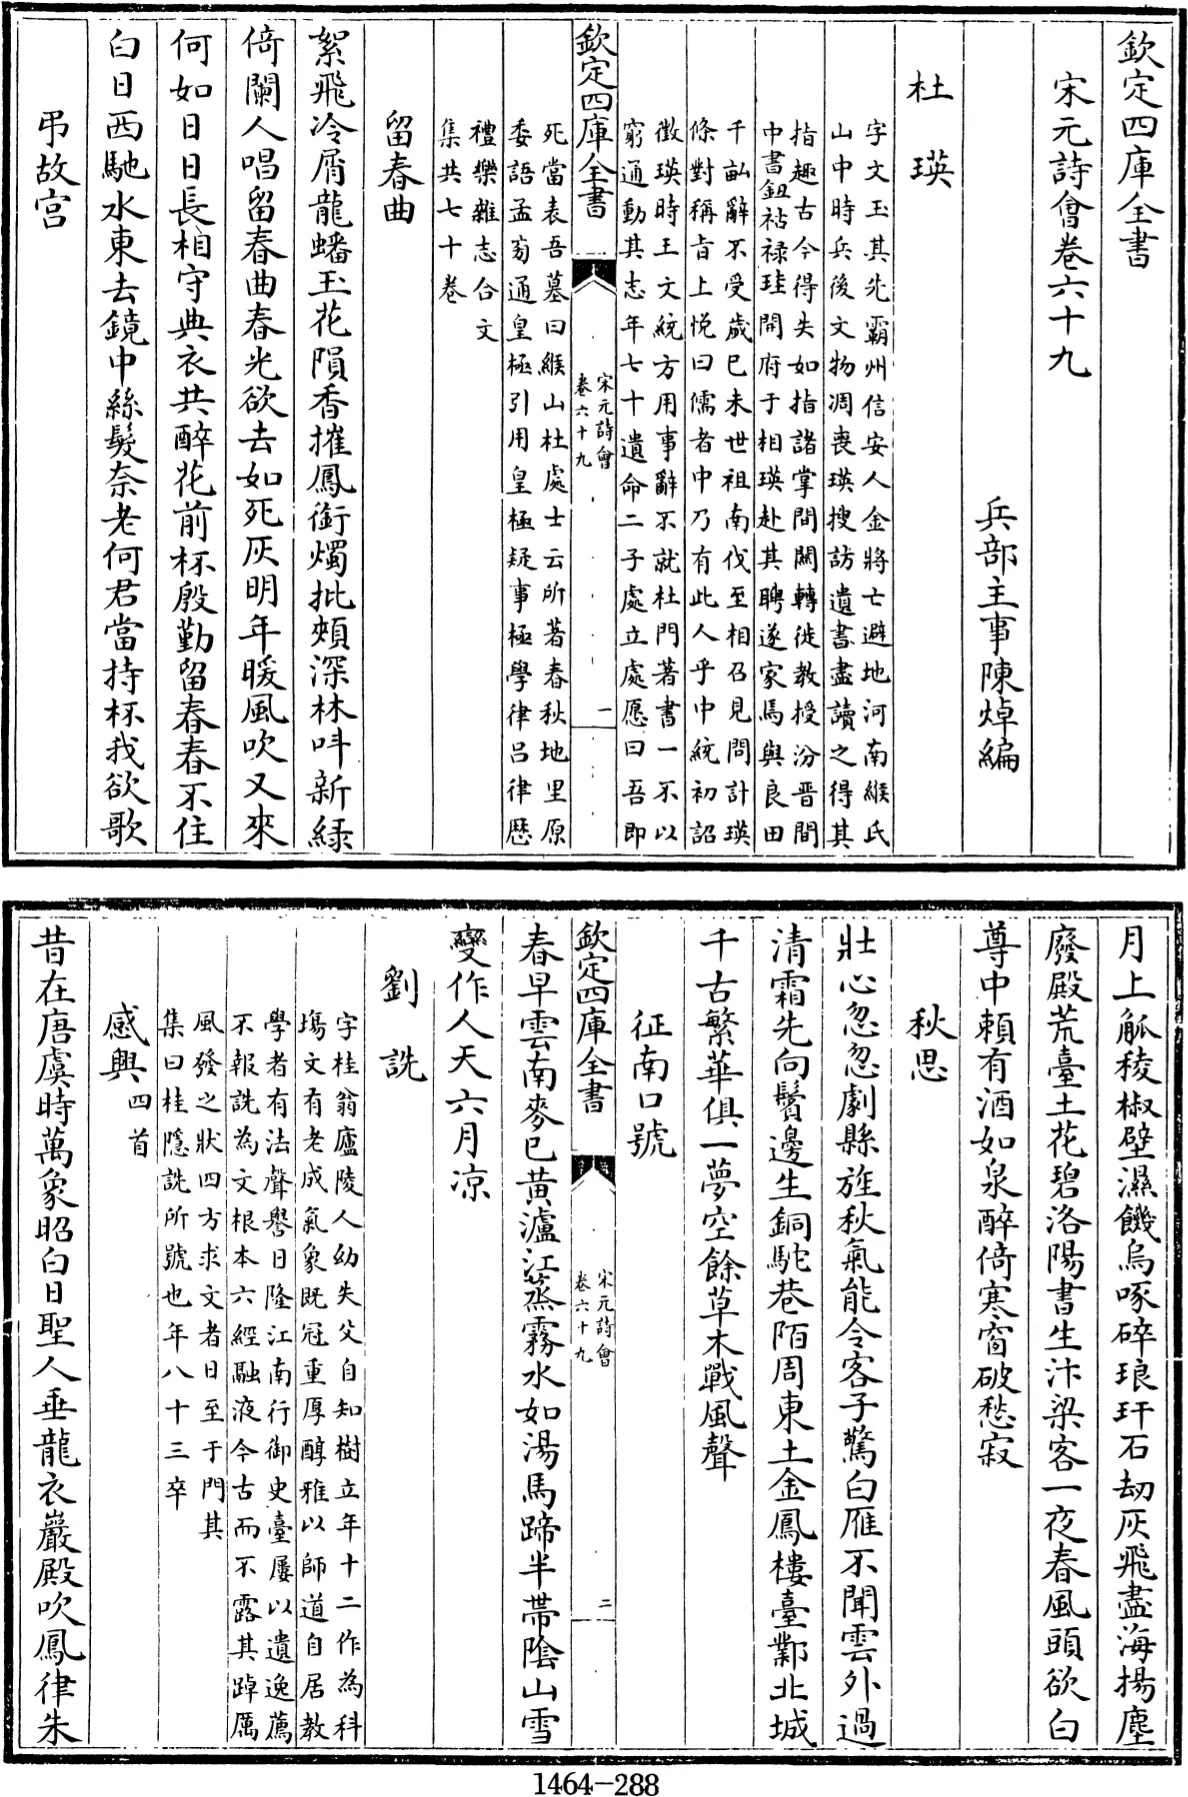 欽定四庫全書
宋元詩會卷六十九
兵部主事陳焯編
杜瑛
字文玉其先霸州信安人金將亡避地河南緱氏
山中時兵後文物凋喪瑛搜訪遺書盡讀之得其
指趣古今得失如指諸掌間關轉徙教授汾晉間
中書鈕祜禄珪開府于相瑛赴其聘遂家焉與良田
千畝辭不受歲已未世祖南伐至相召見問計瑛
條對稱旨上悦曰儒者中乃有此人乎中統初詔
徵瑛時王文統方用事辭不就杜門著書一不以
窮通動其志年七十遺命二子處立處愿曰吾即
欽定四庫全書
宋元詩會
卷六十九
一
死當表吾墓曰緱山杜處士云所著春秋地里原
委語孟旁通皇極引用皇極疑事極學律吕律歷
禮樂雜志合文
集共七十卷
留春曲
絮飛冷屑龍蟠玉花隕香摧鳳銜燭批頰深林呌新緑
倚闌人唱留春曲春光欲去如死灰明年暖風吹又來
何如日日長相守典衣共醉花前杯殷勤留春春不住
白日西馳水東去鏡中絲髮奈老何君當持杯我欲歌
弔故宫
月上觚稜椒壁濕饑烏啄碎琅玕石刼灰飛盡海揚塵
廢殿荒臺土花碧洛陽書生汴梁客一夜春風頭欲白
尊中賴有酒如泉醉倚寒窗破愁寂
秋思
壯心忽忽劇縣旌秋氣能令客子驚白雁不聞雲外過
清霜先向鬢邊生銅駝巷陌周東土金鳳樓臺鄴北城
千古繁華俱一夢空餘草木戰風聲
征南口號
欽定四庫全書
宋元詩會
卷六十九
二
春早雲南麥已黄瀘江蒸霧水如湯馬蹄半帶陰山雪
變作人天六月凉
劉詵
字桂翁廬陵人幼失父自知樹立年十二作為科
塲文有老成氣象既冠重厚醇雅以師道自居教
學者有法聲譽日隆江南行御史臺屢以遺逸薦
不報詵為文根本六經融液今古而不露其踔厲
風發之狀四方求文者日至于門其
集曰桂隱詵所號也年八十三卒
感興四首
昔在唐虞時萬象昭白日聖人垂龍衣巖殿吹鳳律朱
1464-288